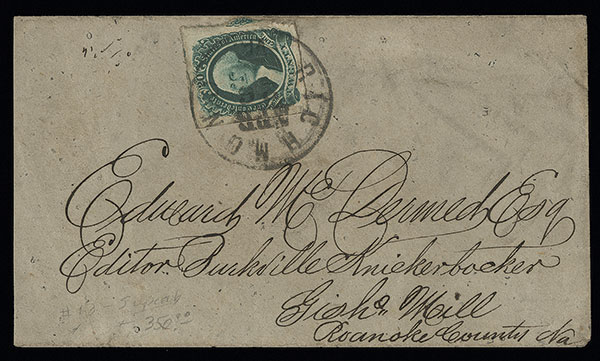 RICHMON
APR
Edward McDermed Esq
Editor Burkville Knickerbocker
Gish's Mill
Roanoke County Va
350.00